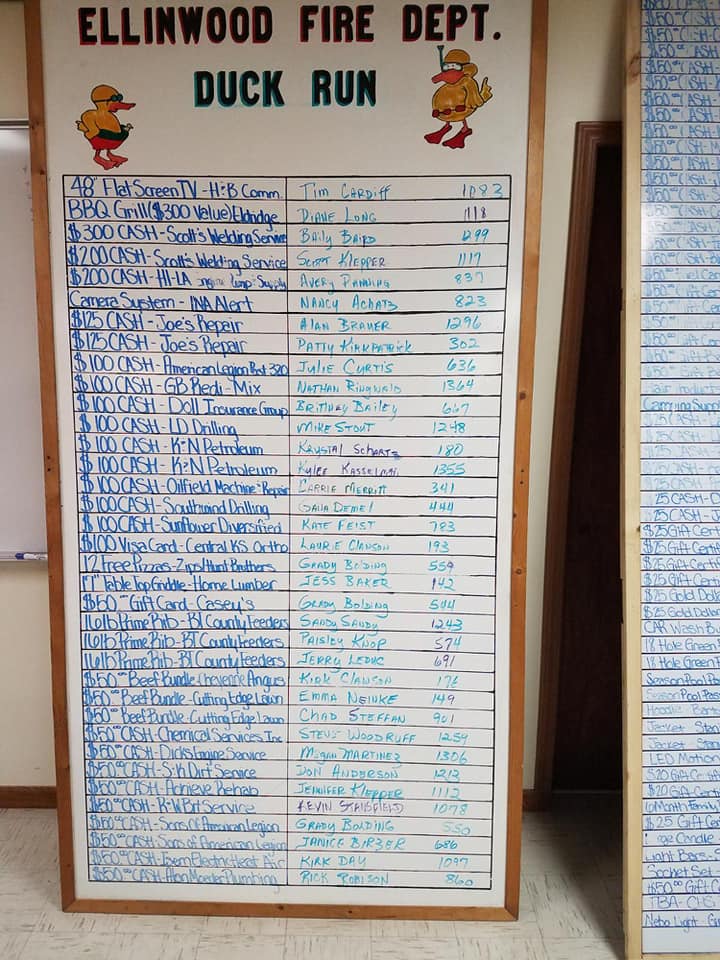 ELLINWOOD FIRE DEPT.
DUCK RUN
48" Flat Screen TV - H&B Comm. Tim Cardiff 1083
BBQ Grill ($300 Value) Eldridge Diane Long 118
$300 CASH - Scott's Welding Service Baily Baird 1299
$200 CASH - Scott's Welding Service Scott Klepper 1117
$200 CASH - HI-LA Supply Avery Panning 837
Camera System - INA Alert Nancy 823
$125 CASH - Joe's Repair Alan Bramer 1296
$125 CASH - Joe's Repair Patty Kirkpatrick 302
$100 CASH - American Legion Post 320 Julie Curtis 636
$100 CASH - GB Redi-Mix Nathan Ringwald 1364
$100 CASH - Doll Insurance Group Britney Bailey 667
$100 CASH - LD Drilling Mike Stout 1248
$100 CASH - K&N Petroleum Krystal Schartz 180
$100 CASH - K&N Petroleum Kylee 1355
$100 CASH - Oilfield Machine & Repair Carrie Merritt 341
$100 CASH - Southwind Drilling Dana Demel 444
$100 CASH - Sunflower Diversified Kate Feist 783
$100 Visa Card - Central KS Ortho Laurie Clawson 193
12 Free Pizzas - Zips/Hunt Brothers Grady Bolding 559
17" Table Top Griddle - Home Lumber Jess Baker 142
$50.00 Gift Card - Casey's Grady Bolding 544
16lb Prime Rib - BT County Feeders Sandy Sandy 1243
16lb Prime Rib - BT County Feeders Paisley Knop 574
16lb Prime Rib - BT County Feeders Jerry Leduc 691
$50.00 Beef Bundle - Cheyenne Angus Kirk Clawson
$50.00 Beef Bundle - Cutting Edge Lawn Emma Neinke 149
$50.00 Beef Bundle - Cutting Edge Lawn Chad Steffan 901
$50.00 CASH - Chemical Services Inc Steve Woodruff 1259
$50.00 CASH - Dicks Engine Service Megan Martinez 1306
$50.00 CASH - S&K Dirt Service Don Anderson 1213
$50.00 CASH - Achieve Rehab Jennifer Klepper 1112
$50.00 CASH - R&W Bit Service Kevin Stansfield 1078
$50.00 CASH - Sons of American Legion Grady Bolding 550
$50.00 CASH - Sons of American Legion Janice Birzer 686
$50.00 CASH - Isern Electric Heat Air Kirk Day 1097
$50.00 CASH - Alan Moeder Plumbing Rick Robison 860
$25 Gift Cert
$25 Gift Cert
$25 Gift Cert
$25 Gift Cert
$25 Gold Dolla
$25 Gold Dollar
CAR Wash B
18 Hole Green
18 Hole Green
Season Pool Pa
Season Pool Pas
Hoodie
Jacket
Jacket
LED Motion
$20 Gift Certi
$20 Gift Certi
6 Month Family
$25 Gift Ce
Candle
Light Bars - S
Socket Set
$50.00 Gift C
TBA - CHS
Nebo Light